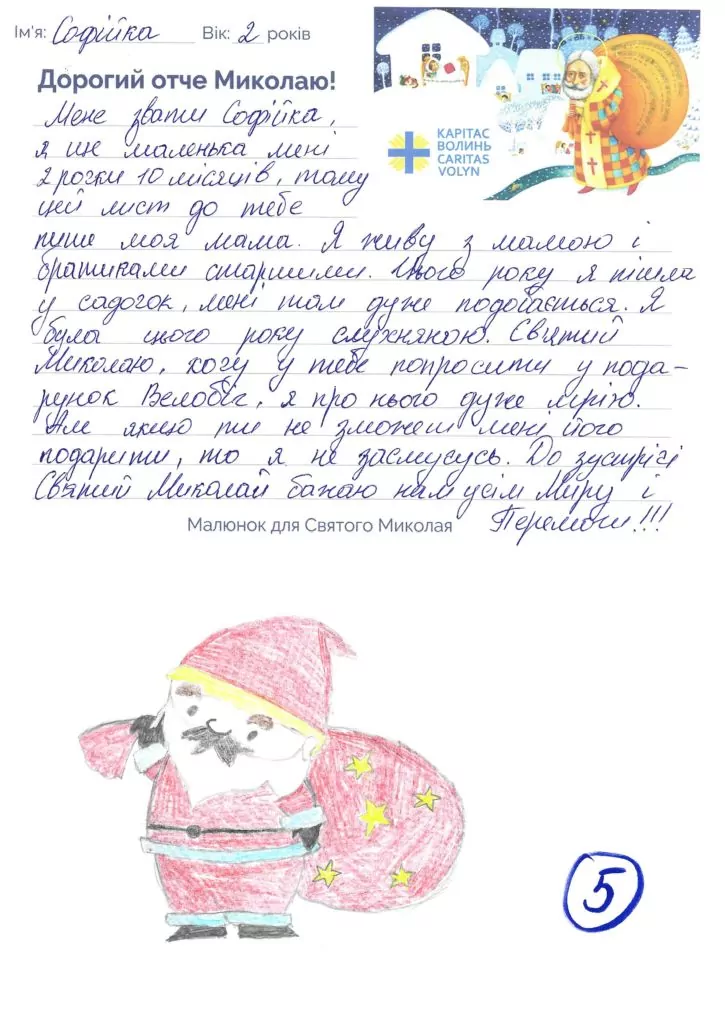 Ім'я: Софійка Вік: 2 років
Дорогий отче Миколаю!
КАРІТАС
ВОЛИНЬ
CARITAS
VOLYN
Мене звати Софійка,
я ще маленька мені
2 рочки 10 місяців, тому
цей лист до тебе
пише моя мама. Я живу з мамою і
братиками старшими. Цього року я пішла
у садочок, мені там дуже подобається. Я
була цього року слухняною. Святий
Миколаю, хочу у тебе попросити у пода-
рунок Велобіг, я про нього дуже мрію.
Але якщо ти не зможеш мені його
подарити, то я не засмусусь. До зустрічі
Святий Миколай бажаю нам усім Миру і
Перемоги!!!
Малюнок для Святого Миколая
5